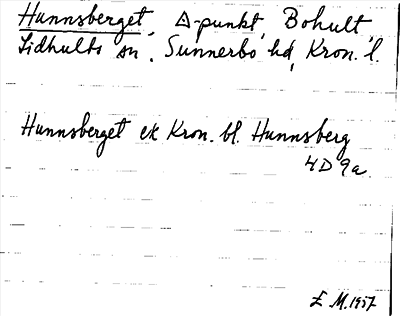 Hunnsberget, △-punkt, Bohult,
Lidhults sn, Sunnerbo hd, Kron. l.
Hunnsberget ek Kron. bl. Hunnsberg
4D 9a.
E M. 1957